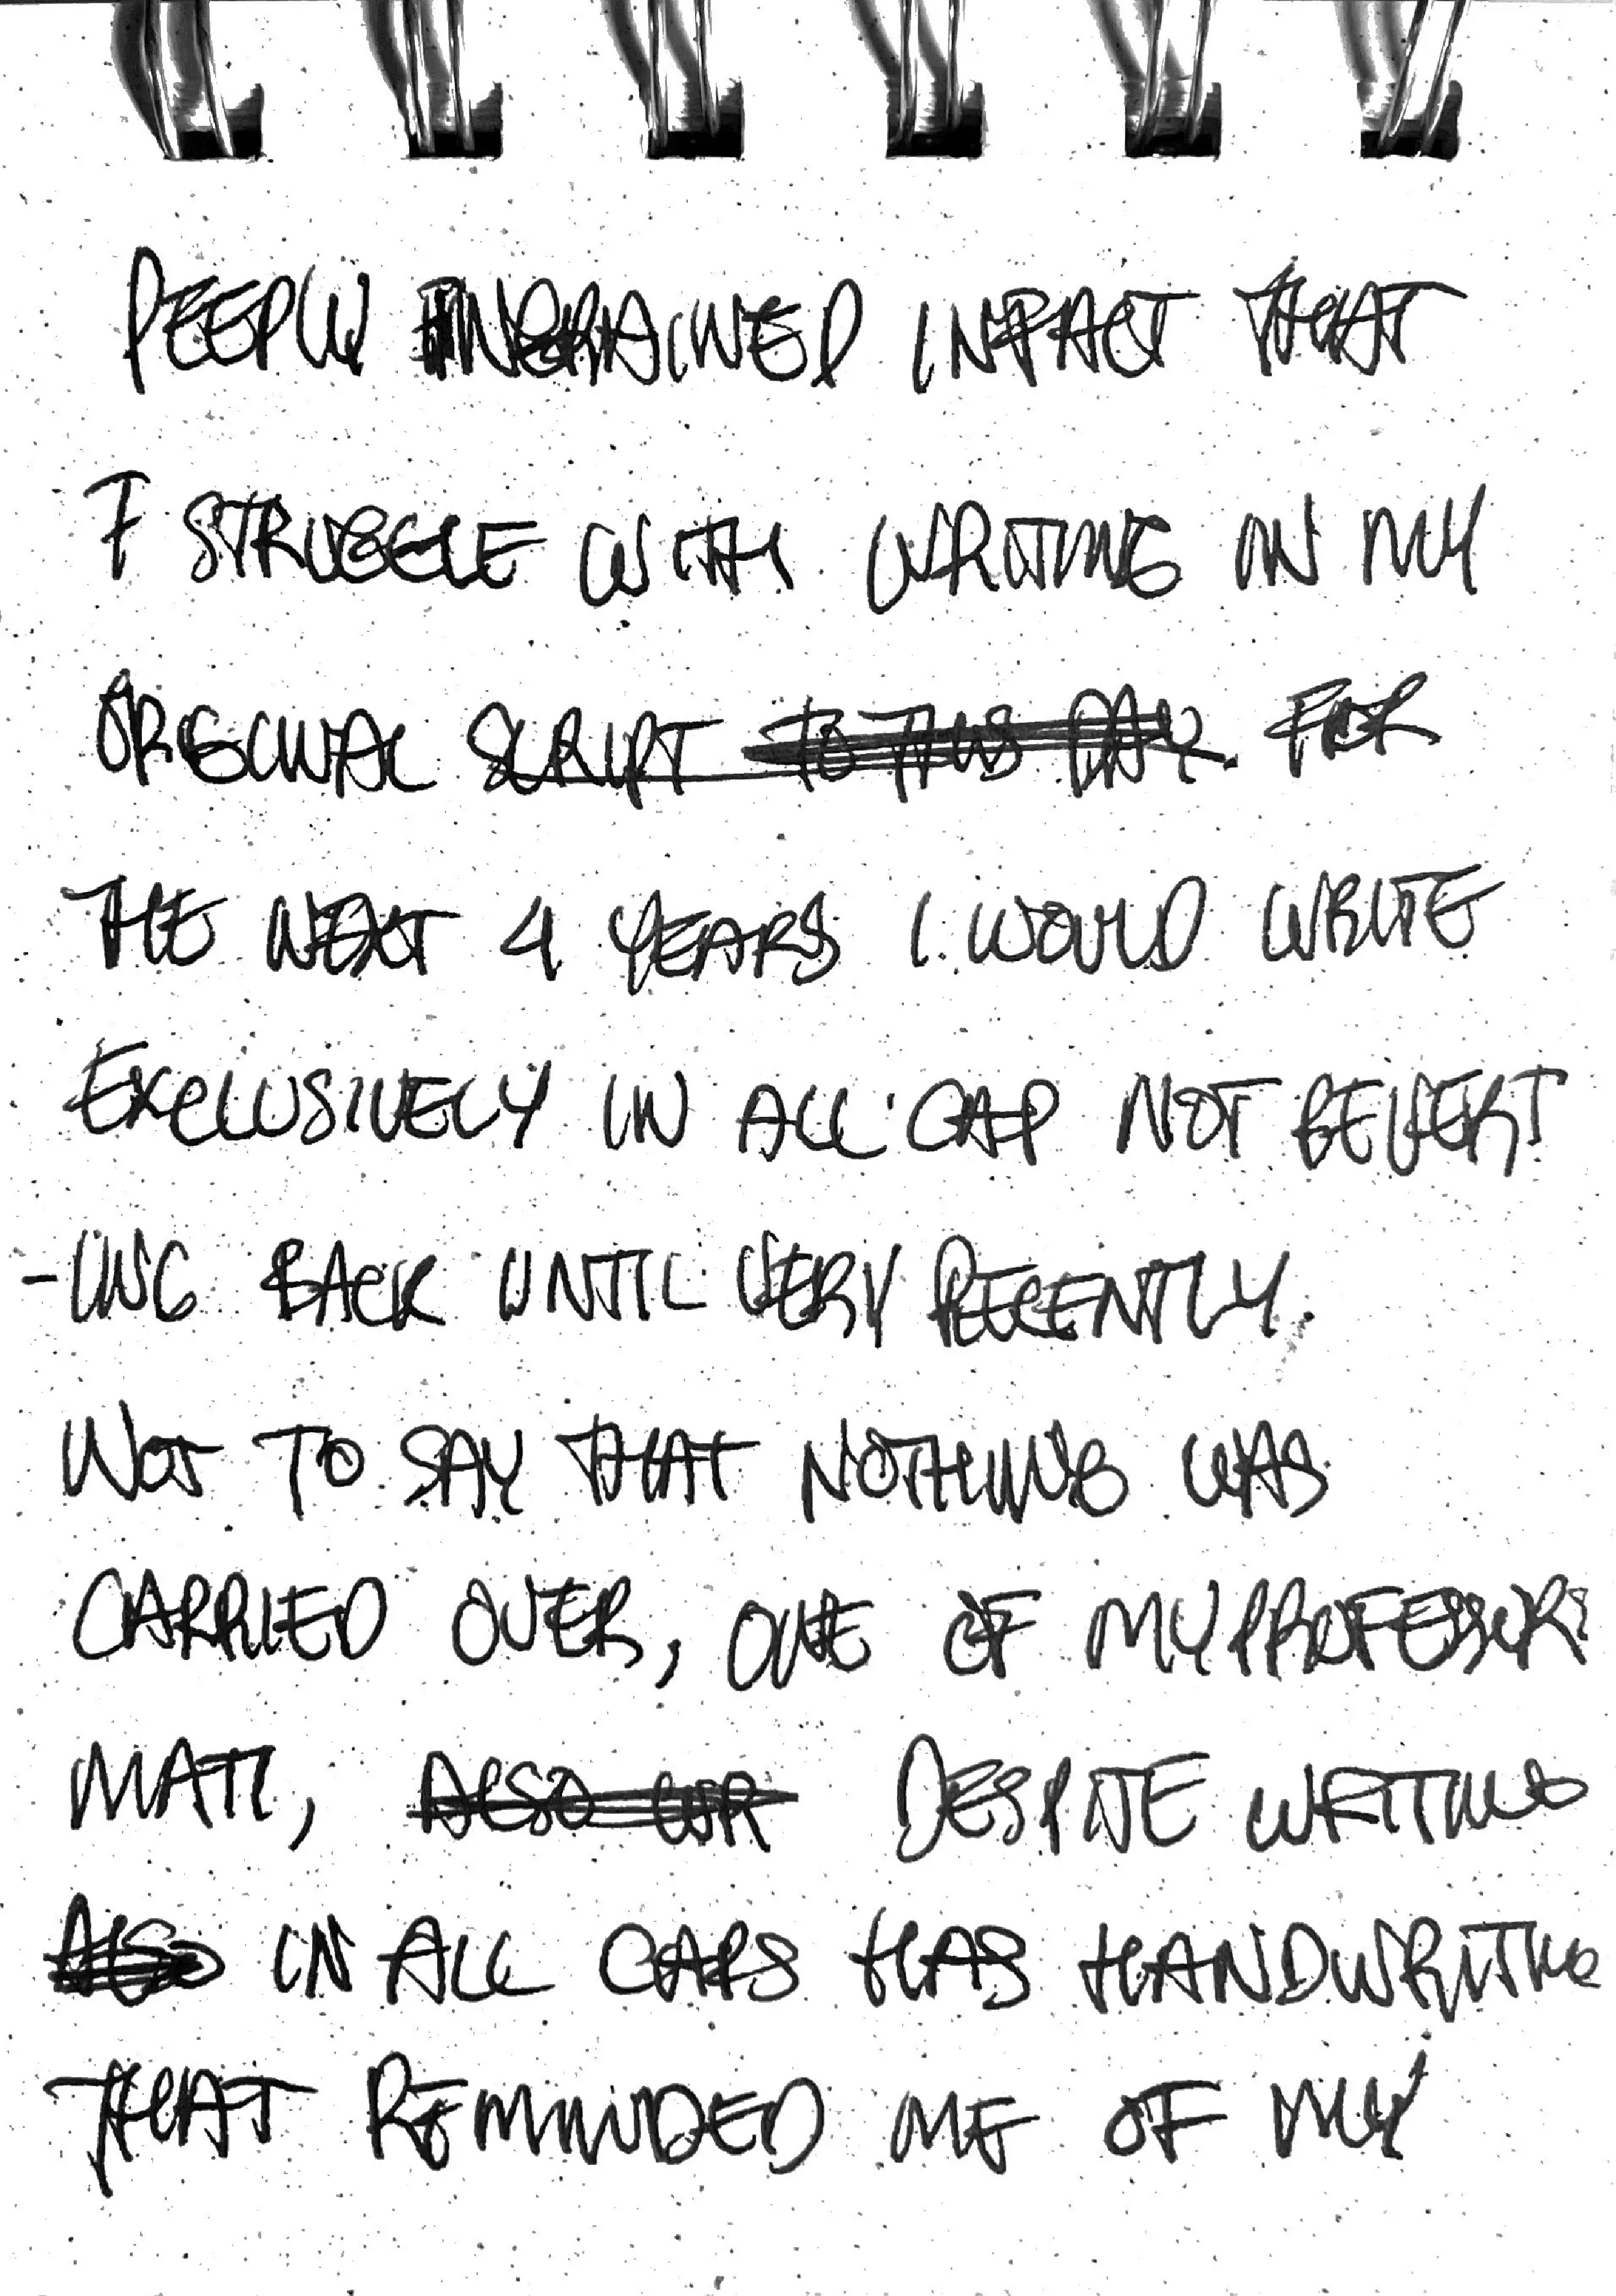 DEEPLY INGRAINED IMPACT THAT
I STRUGGLE WITH WRITING IN MY
ORIGINAL SCRIPT TO THIS DAY. FOR
THE NEXT 4 YEARS I WOULD WRITE
EXCLUSIVELY IN ALL CAP NOT REVERT
-ING BACK UNTIL VERY RECENTLY.
NOT TO SAY THAT NOTHING WAS
CARRIED OVER, ONE OF MY PROFESSORS
MATI, ALSO WR DESPITE WRITING
ALSO IN ALL CAPS HAS HANDWRITING
THAT REMINDED ME OF MY